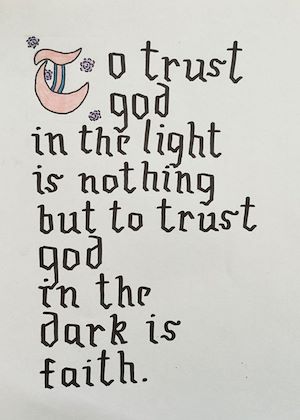 To trust
god
in the light
is nothing
but to trust
god
in the
dark is
faith.